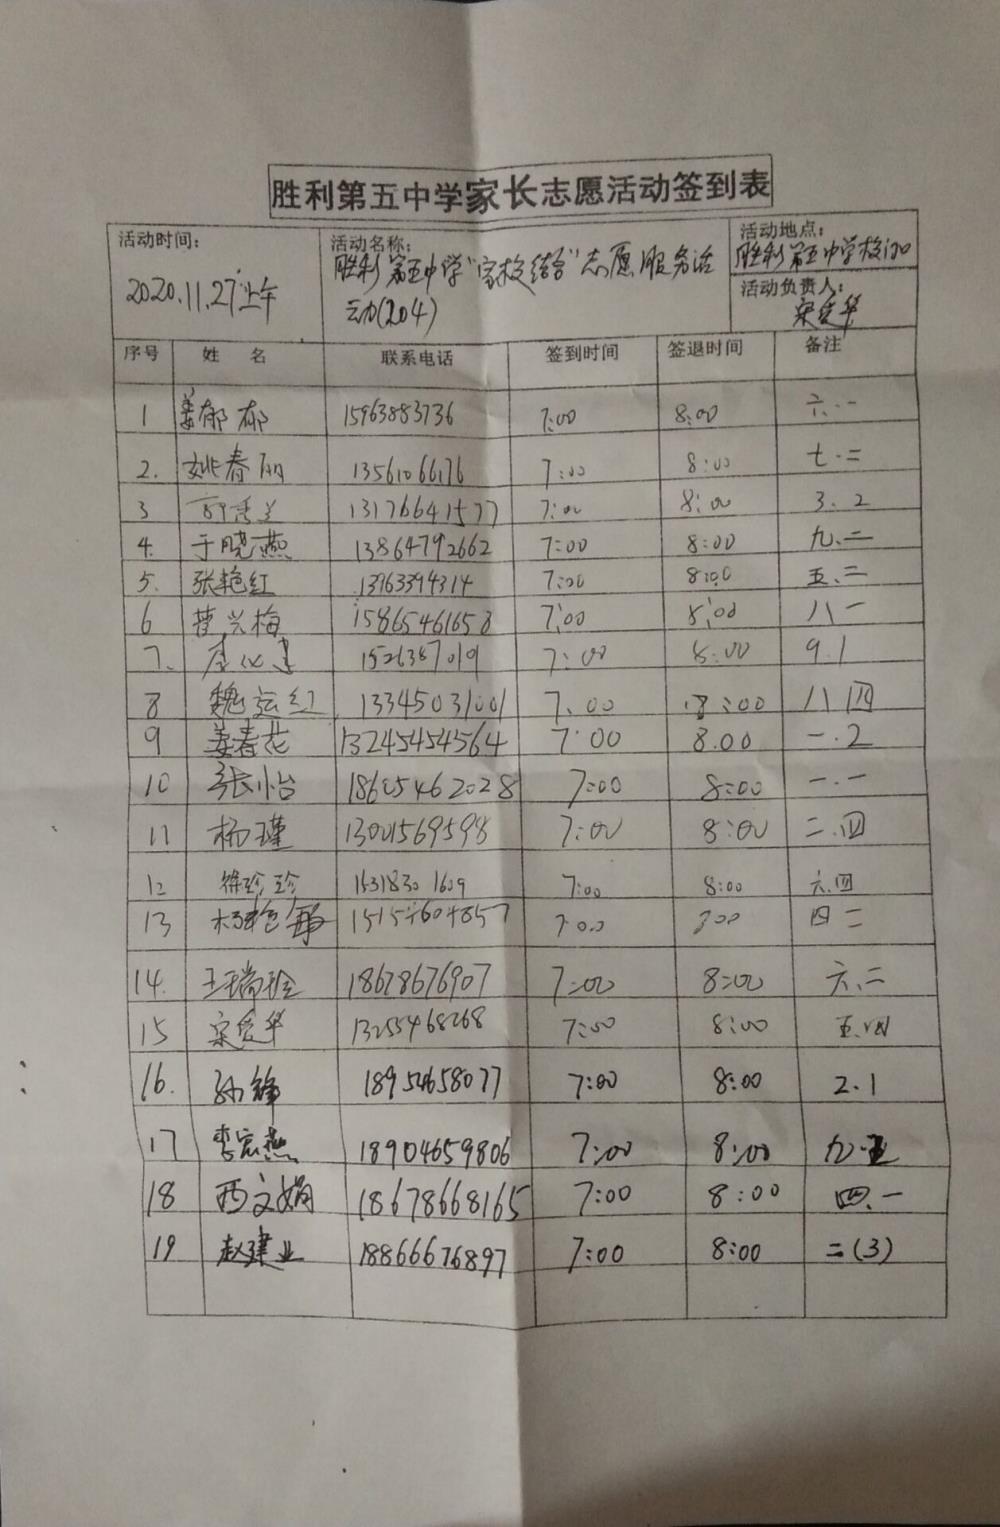 胜利第五中学家长志愿活动签到表
活动时间: 2020.11.27上午
活动名称: 胜利第五中学"家校结合"志愿服务活
动(204)
活动地点: 胜利第五中学校门口
活动负责人: 宋爱华
序号 姓名 联系电话 签到时间 签退时间 备注
1 姜郁郁 15963883736 7:00 8:00 六.一
2. 姚春丽 13561066176 7:00 8:00 七.二
3 13176641577 7:00 8:00 3.2
4. 于晓燕 13864792662 7:00 8:00 九.二
5. 张艳红 13963394314 7:00 8:00 五.二
6 曹兴梅 15865461658 7:00 8:00 八一
7. 1526387019 7:00 8:00 9.1
8 魏运红 13345031001 7:00 8:00 八四
9 姜春花 13245454564 7:00 8.00 一.2
10 张怡 18605462028 7:00 8:00 一.一
11 杨瑾 13001569598 7:00 8:00 二.四
12 徐珍珍 15318301609 7:00 8:00 六.四
13 15154604857 7:00 四二
14. 王瑞玲 18678676907 7:00 8:00 六.二
15 宋爱华 13255468268 7:00 8:00 五.四
16. 孙锋 18954658077 7:00 8:00 2.1
17 李宏燕 18904659806 7:00 8:00 九.五
18 西文娟 18678668165 7:00 8:00 四.一
19 赵建业 18866676897 7:00 8:00 二(3)